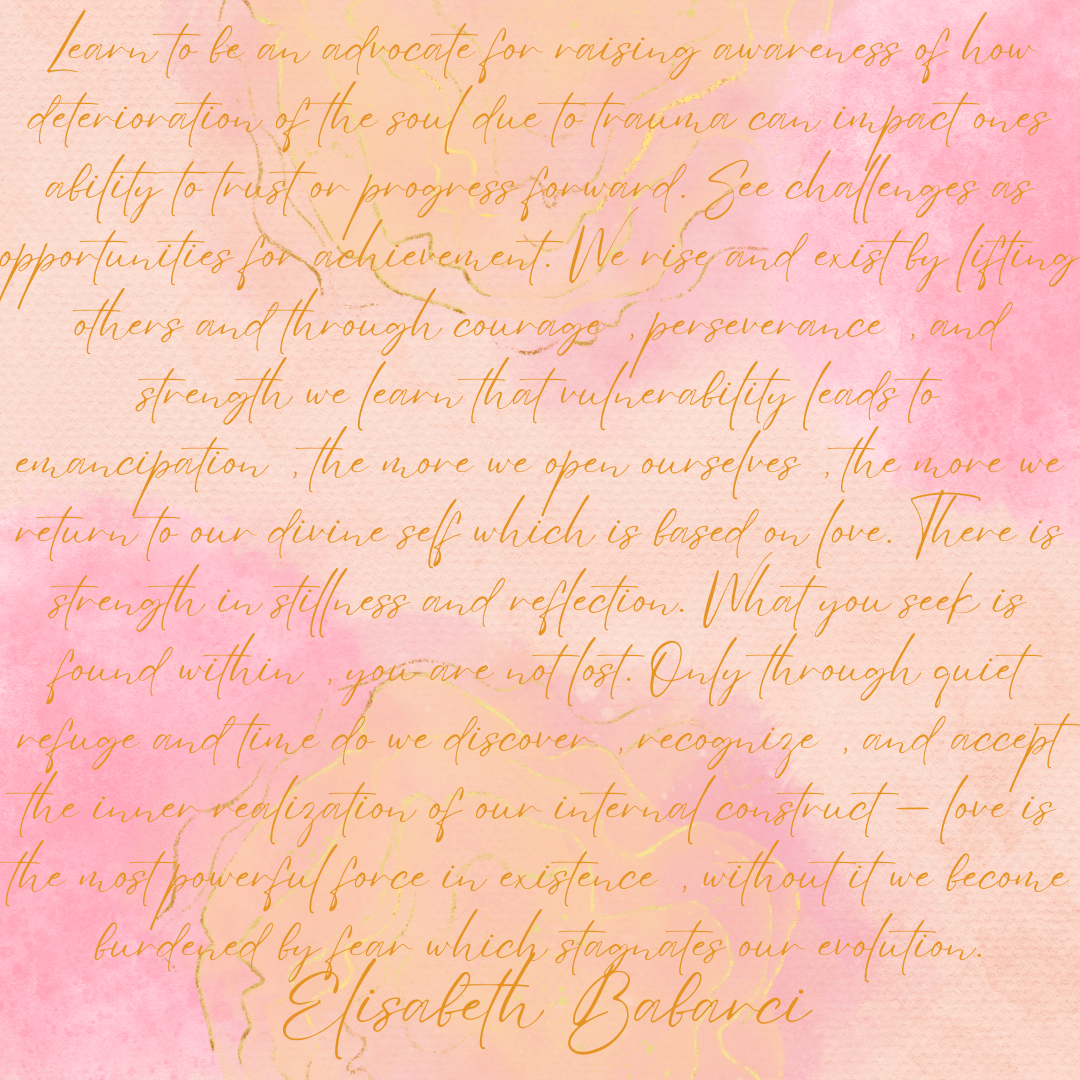 Learn to be an advocate for raising awareness of how
deterioration of the soul due to trauma can impact ones
ability to trust or progress forward. See challenges as
opportunities for achievement. We rise and exist by lifting
others and through courage , perseverance , and
strength we learn that vulnerability leads to
emancipation , the more we open ourselves , the more we
return to our divine self which is based on love. There is
strength in stillness and reflection. What you seek is
found within , you are not lost. Only through quiet
refuge and time do we discover , recognize , and accept
the inner realization of our internal construct – love is
the most powerful force in existence , without it we become
burdened by fear which stagnates our evolution.
Elisabeth Babarci